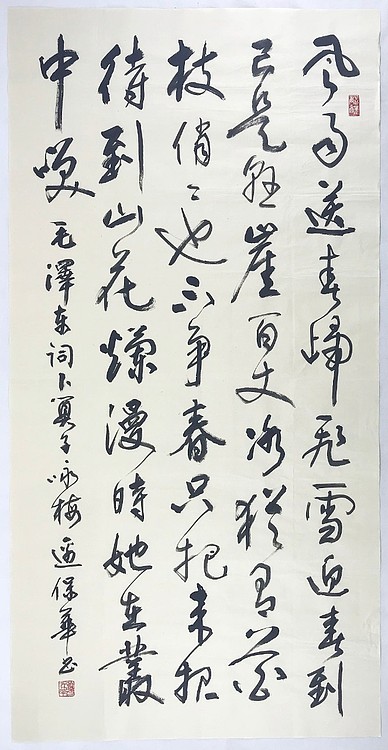 風雨送春歸飛雪迎春到
已是懸崖百丈冰猶有花
枝俏〻也不争春只把来报
待到山花爛漫時她在叢
中笑 毛澤东词卜算子咏梅 邊保華书